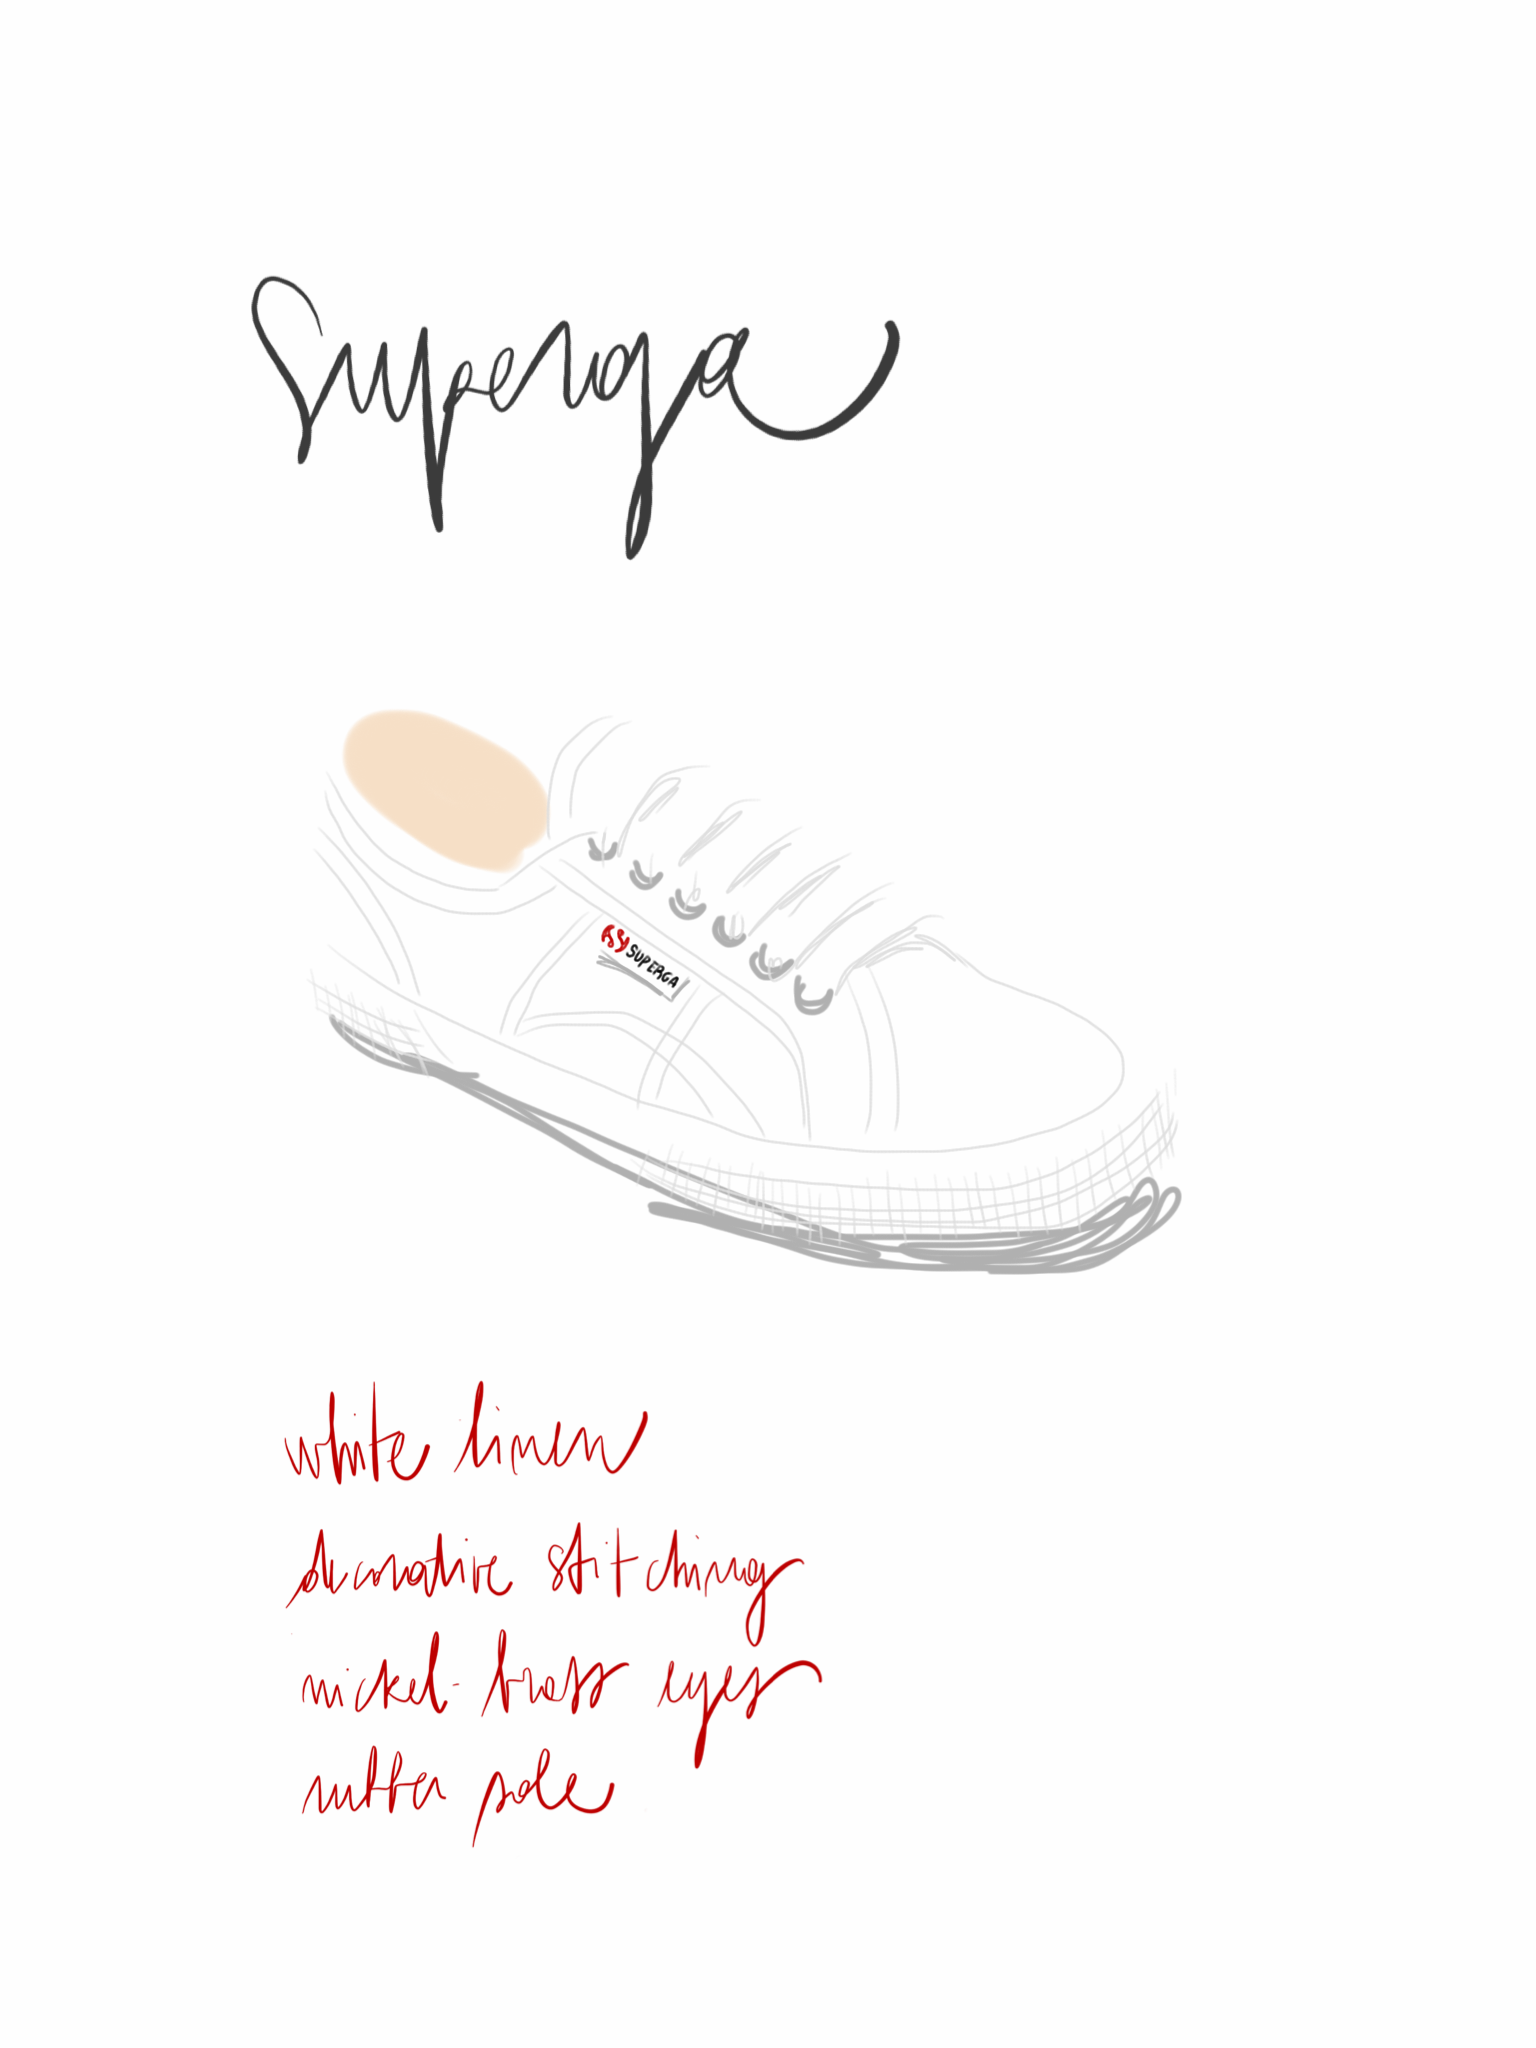 Superga
SUPERGA
white linen
decorative stitching
nickel-brass eyes
rubber sole